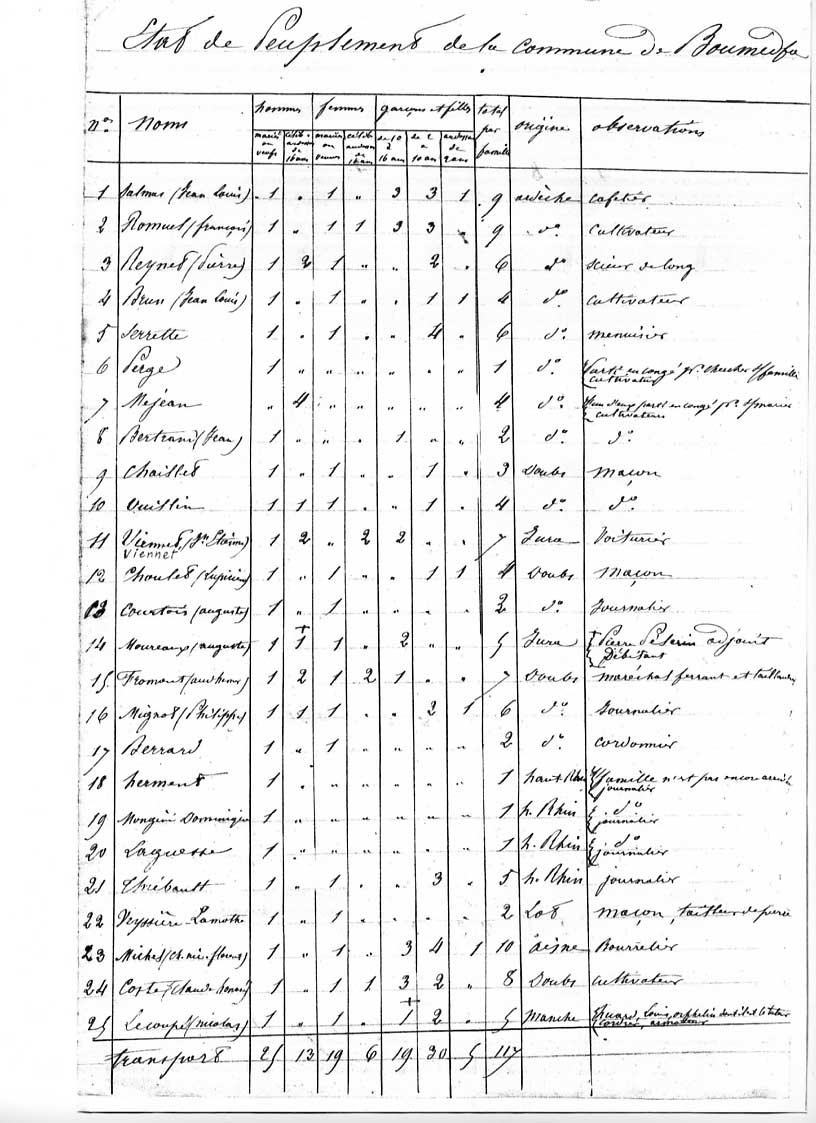 Etat de Peuplement de la commune de Boumedfa
Nos Noms hommes femmes garçons et filles total par famille origine observations
mariés ou veufs célib. au dessus de 16 ans mariées ou veuves célib. au dessus de 16 ans de 10 à 16 ans de 2 à 10 ans au dessous de 2 ans
1 Salmas (Jean Louis) 1 " 1 " 3 3 1 9 ardèche cafetier
2 Romuel (françois) 1 " 1 1 3 3 " 9 do cultivateur
3 Reynet (Pierre) 1 2 1 " " 2 " 6 do scieur de long
4 Brun (Jean Louis) 1 " 1 " " 1 1 4 do cultivateur
5 Serrette 1 " 1 " " 4 " 6 do menuisier
6 Perge 1 " " " " " " 1 do Parti en congé pr. chercher sa famille
cultivateur
7 Mejean " 4 " " " " " 4 do parti en congé pr. se marier
cultivateurs
8 Bertrand (Jean) 1 " " " 1 " " 2 do do
9 Chaillet 1 " 1 " " 1 " 3 Doubs maçon
10 Vuillin 1 1 1 " " 1 " 4 do do
11 Viennet (Jn Etienne) 1 2 " 2 2 " " 7 Jura Voiturier
Viennet
12 Choulet (Lupicien) 1 " 1 " " 1 1 4 Doubs maçon
13 Courtois (auguste) 1 " 1 " " " " 2 do Journalier
14 Moureaux (auguste) 1 1 1 " 2 " " 5 Jura Pierre Peserin adjoint
Débitant
15 Fromont 1 2 1 2 1 " " 7 Doubs maréchal ferrant et taillandier
16 Mignot (Philippe) 1 1 1 " " 2 1 6 do Journalier
17 Berrard 1 " 1 " " " " 2 do cordonnier
18 herment 1 " " " " " " 1 haut Rhin sa famille n'est pas encore arrivée
journalier
19 Mongini Dominique 1 " " " " " " 1 h. Rhin do
journalier
20 Laguesse 1 " " " " " " 1 h. Rhin do
journalier
21 Thiébault 1 " 1 " " 3 " 5 h. Rhin journalier
22 Veyssière Lamothe 1 " 1 " " " " 2 Lot maçon, tailleur de pierre
23 Michel 1 " 1 " 3 4 1 10 aisne Bourrelier
24 Coste (Claude honoré) 1 " 1 1 3 2 " 8 Doubs cultivateur
25 Lecoupé (nicolas) 1 " 1 " 1 2 " 5 manche Louis, orphelin dont il est le tuteur
transport 25 13 19 6 19 30 5 117